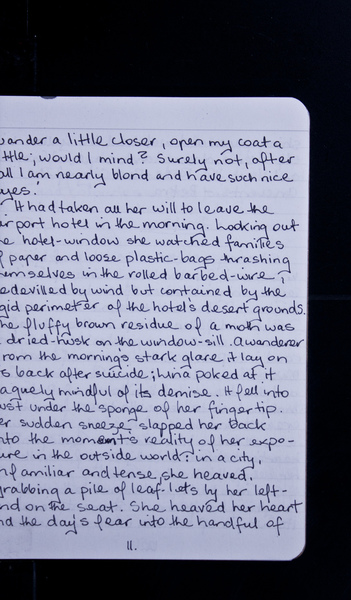 wander a little closer, open my coat a
ttle, would I mind? Surely not, after
all I am nearly blond and have such nice
yes.'
'It had taken all her will to leave the
irport hotel in the morning. Looking out
e hotel-window she watched families
f paper and loose plastic-bags thrashing
emselves in the rolled barbed-wire,
edevilled by wind but contained by the
gid perimeter of the hotel's desert grounds.
he fluffy brown residue of a moth was
dried-husk on the window-sill. A wanderer
rom the morning's stark glare it lay on
s back after suicide; Luna poked at it
aguely mindful of its demise. It fell into
ust under the sponge of her fingertip.
er sudden sneeze slapped her back
nto the moments reality of her expo-
ure in the outside world: in a city,
nfamiliar and tense, she heaved.
grabbing a pile of leaf-lets by her left-
nd on the seat. She heaved her heart
nd the day's fear into the handful of
11.